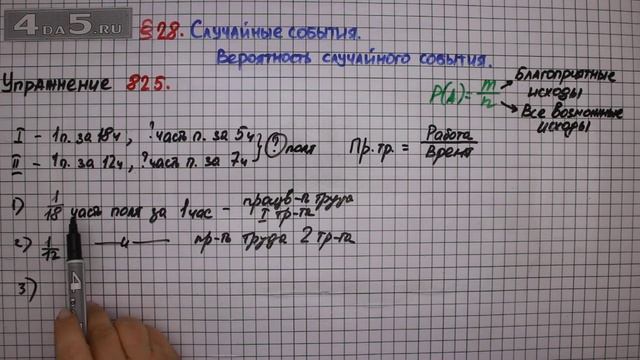 4DA5.RU
§ 28. Случайные события.
Вероятность случайного события.
Упражнение 825.
P(A) = m/n
Благоприятные исходы
Все возможные исходы
I – 1п. за 18ч, ? част п. за 5ч
II – 1п. за 12ч, ? част п. за 7ч
? поля
Пр. тр. = Работа/Время
1) 1/18 часть поля за 1 час – произв-ть труда
I тр-та
2) 1/12 —〃— пр-ть труда 2 тр-та
3)
4